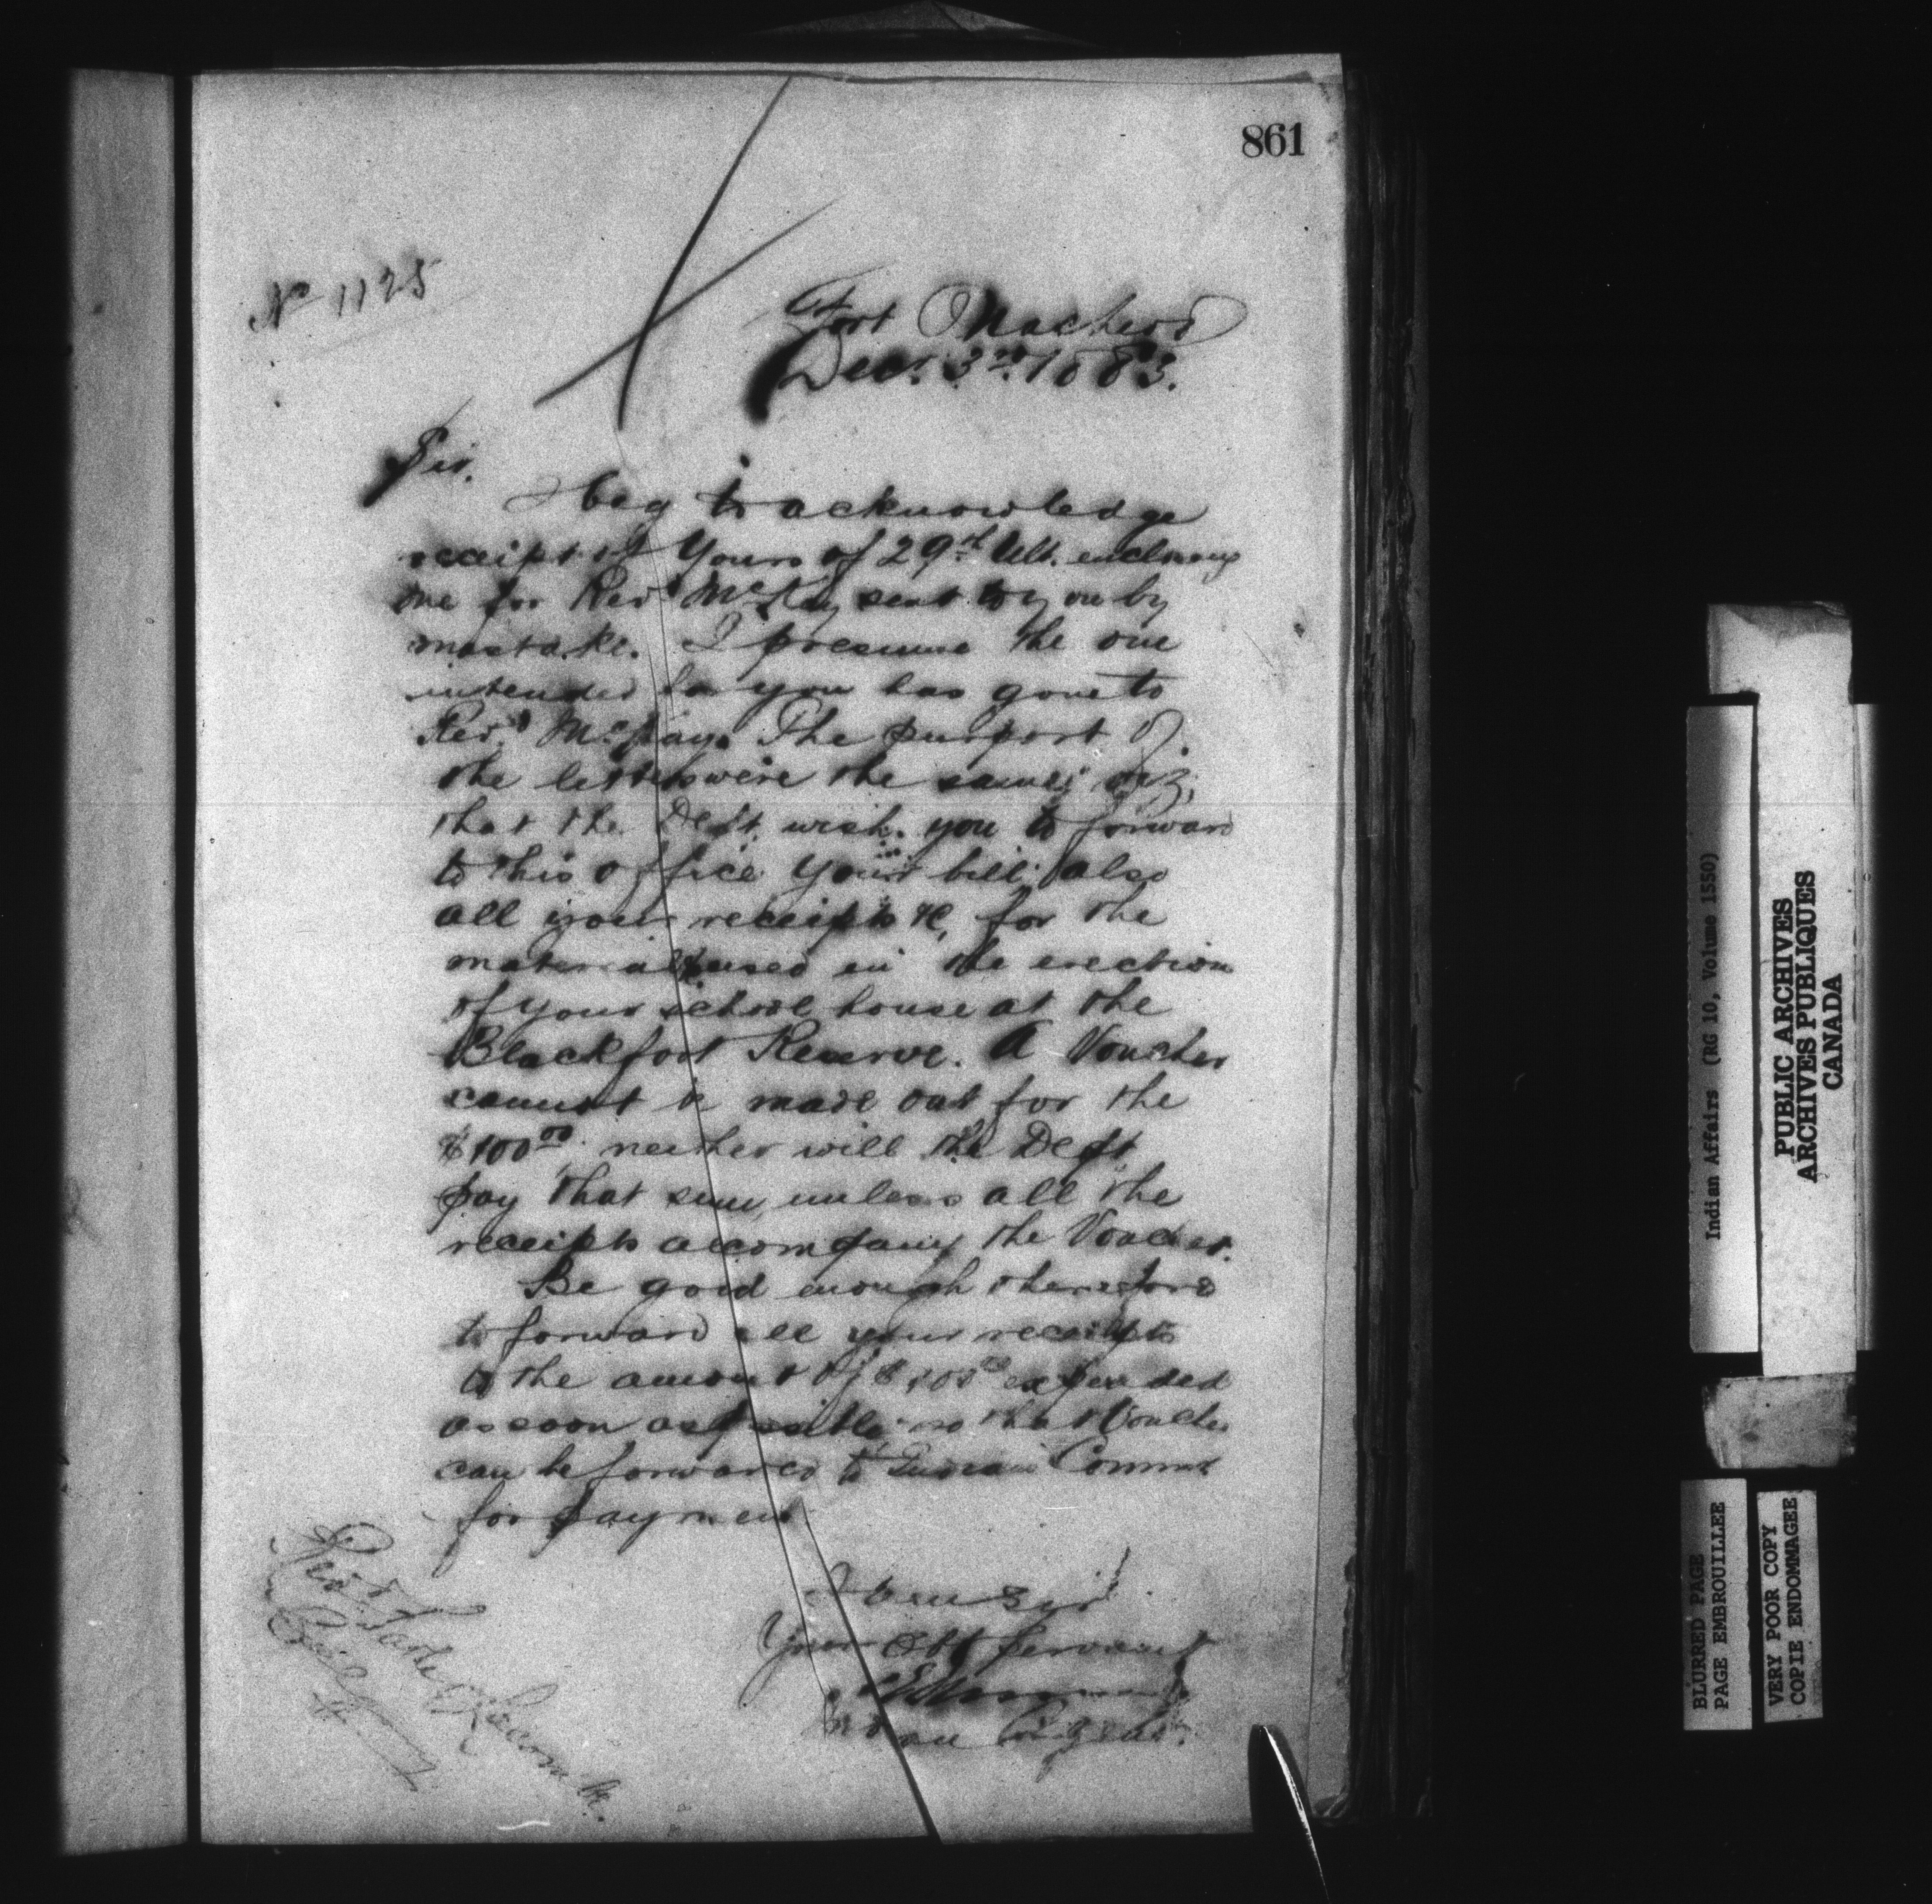 861
No 1125
Fort Macleod
Decr. 3rd. 1883.
Sir.
I beg to acknowledge
receipt of Yours of 29th Ult. enclosing
one for Revd McKay sent to you by
mastake. I presume the one
intended for you has gone to
Revd McKay. The purport of
the letters were the same; viz,
that the Dept. wish you to forward
to this office your bill also
all your receipts &c, for the
material used in the erection
of your school house at the
Blackfoot Reserve. A Voucher
cannot be made out for the
$100 00 neither will the Dept
pay that sum, unless all the
receipts accompany the Voucher.
Be good enough therefore
to forward all your receipts
to the amount of $100 00 expended
as soon as possible so that Voucher
can be forwarded to Indian Commr
for payment
I am Sir
Your Obt Servant
Indian Agent.
Revd Father Lacombe.
Calgary
Indian Affairs (RG 10, Volume 1550)
PUBLIC ARCHIVES
ARCHIVES PUBLIQUES
CANADA
BLURED PAGE
PAGE EMBROUILLEE
VERY POOR COPY
COPIE ENDOMMAGEE